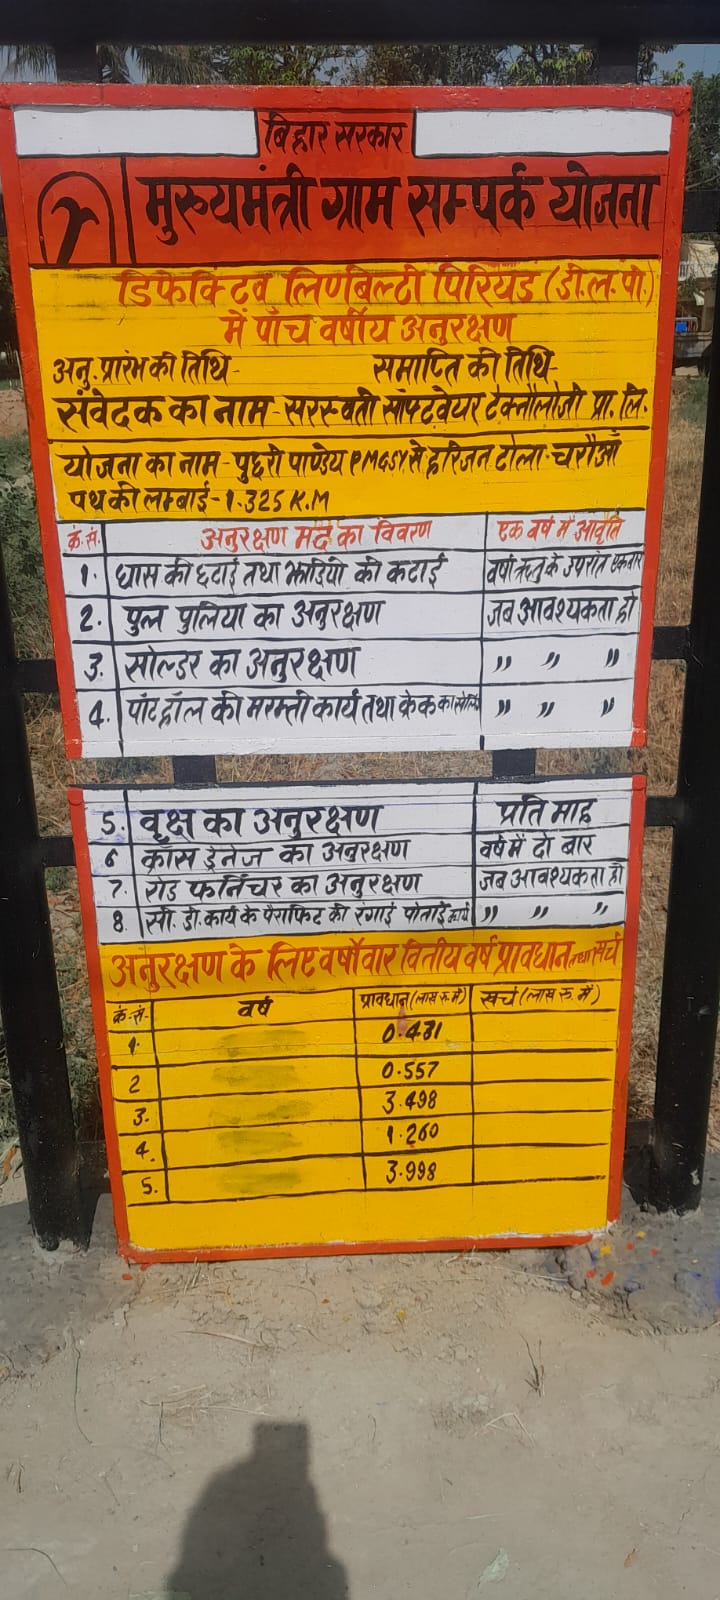 बिहार सरकार
मुख्यमंत्री ग्राम सम्पर्क योजना
डिफेक्टिव लिणबिल्टी पिरियड (डी.ल.पी.)
में पाँच वर्षीय अनुरक्षण
अनु. प्रारंभ की तिथि - समाप्ति की तिथि -
संवेदक का नाम - सरस्वती सॉफ्टवेयर टेक्नौलोजी प्रा. लि.
योजना का नाम - पुछरी पाण्डेय PMGSY से हरिजन टोला - चरौआँ
पथ की लम्बाई - 1.325 K.M
क्र.सं. अनुरक्षण मद का विवरण एक वर्ष में आवृति
1. घास की छटाई तथा झाडियो की कटाई वर्षा ऋतु के उपरांत एकबार
2. पुल पुलिया का अनुरक्षण जब आवश्यकता हो
3. सोल्डर का अनुरक्षण " " "
4. पॉट हॉल की मरम्ती कार्य तथा क्रेक का सीलिंग " " "
5. वृक्ष का अनुरक्षण प्रति माह
6 क्रॉस ड्रेनेज का अनुरक्षण वर्ष में दो बार
7. रोड फर्निचर का अनुरक्षण जब आवश्यकता हो
8. सी. डी. कार्य के पैराफिट की रंगाई पोताई कार्य " " "
अनुरक्षण के लिए वर्षोवार वितीय वर्ष प्रावधान तथा खर्च
क्रं.सं. वर्ष प्रावधान (लाख रू में) खर्च (लाख रू. में)
1. 0.431
2 0.557
3. 3.498
4. 1.260
5. 3.998